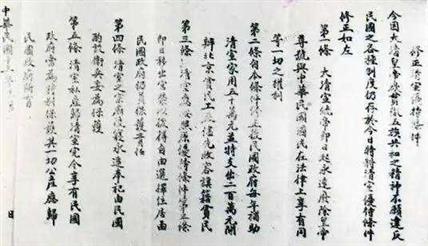 修正清室優待條件
今因大清皇帝欲貫徹五族共和之精神不願違反
民國之各種制度仍存於今日特將清室優待條件
修正如左
第一條 大清宣統帝即日起永遠廢除皇帝
尊號與中華民國國民在法律上享有同
等一切之權利
第二條 自本條件修正後民國政府每年補助
清室家用五十萬元並特支出二百萬元開
辦北京貧民工廠儘先收容旗籍貧民
第三條 清室應按照原優待條件第三條
即日移出宮禁以後得自由選擇住居由
民國政府仍負保護責任
第四條 清室之宗廟陵寢永遠奉祀由民國
酌設衛兵妥為保護
第五條 清室私產歸清室完全享有民國
政府當為特別保護其一切公產應歸
民國政府所有
中華民國十三年 月 日